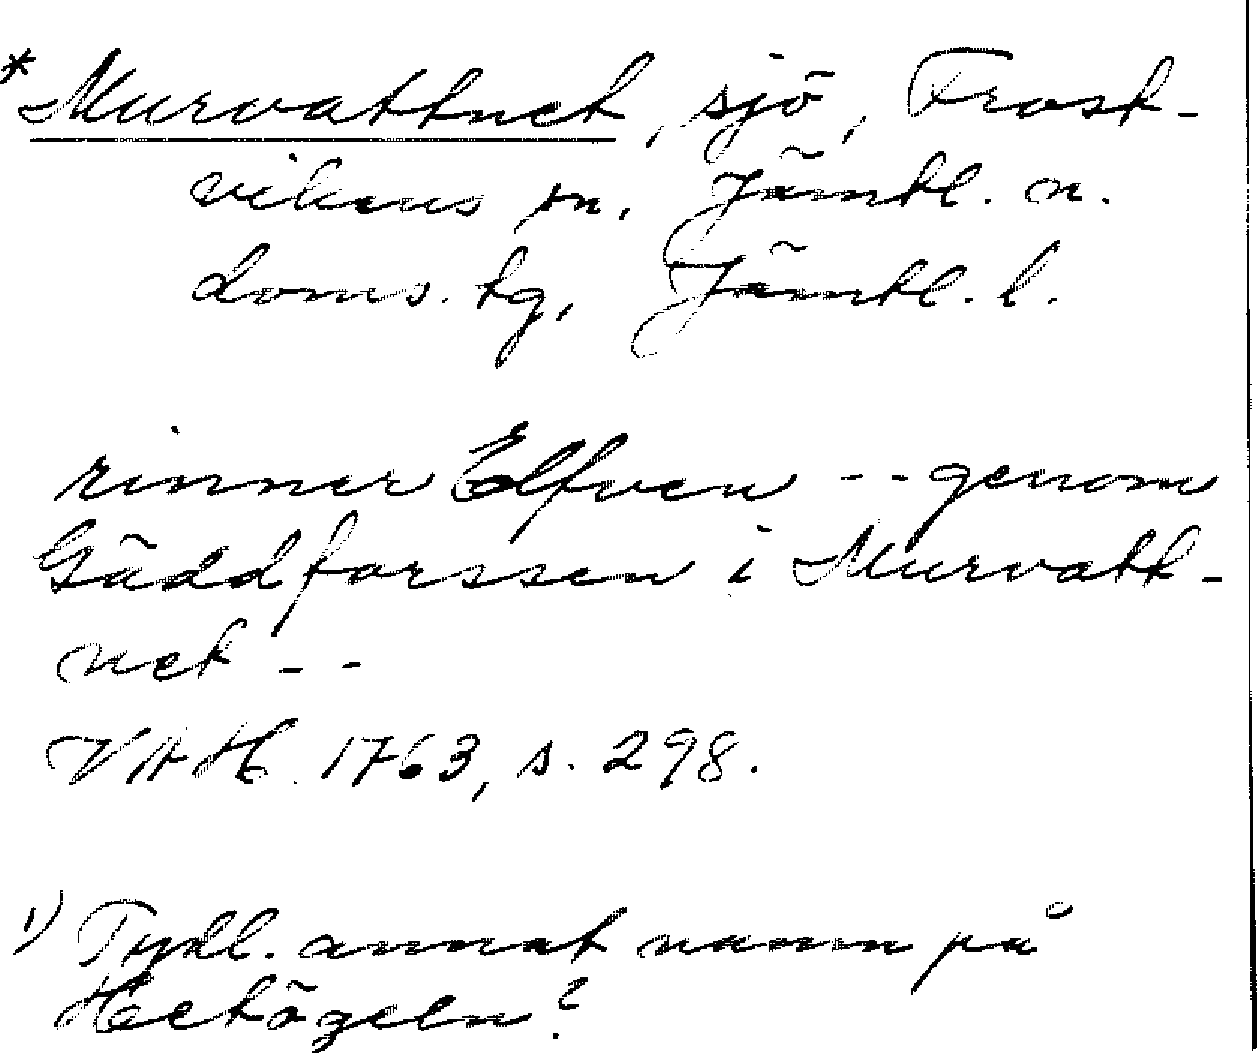 * Murvattnet, sjö, Frost-
vikens sn, Jämtl. n.
doms. tg, Jämtl. l.
rinner Elfven -- genom
Gäddforssen i Murvatt-
net --
VAH. 1763, s. 298.
1) Tydl. annat namn på
Hetögeln?